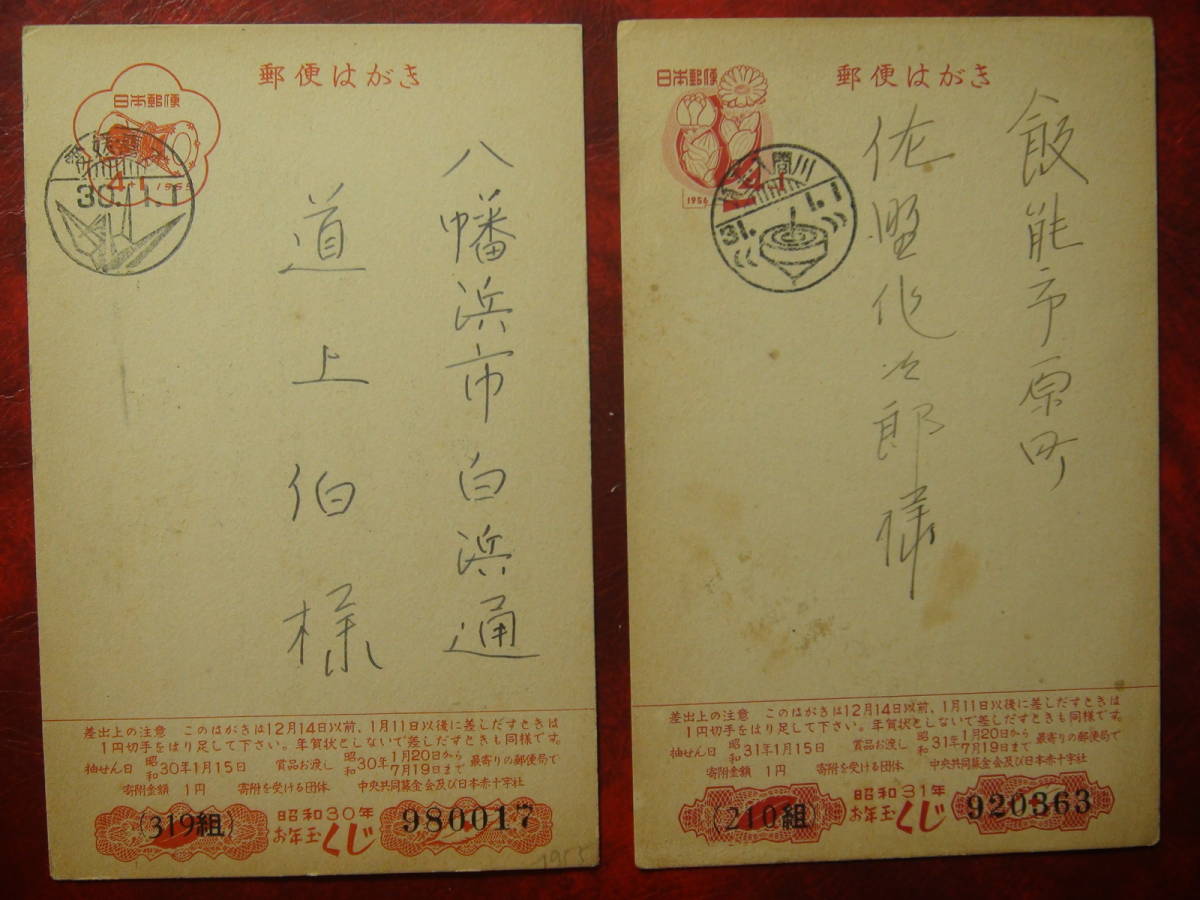 郵便はがき
日本郵便
4+1 1955
30.1.1
八幡浜市白浜通
道上伯様
差出上の注意 このはがきは12月14日以前、1月11日以後に差しだすときは
1円切手をはり足して下さい。年賀状としないで差しだすときも同様です。
抽せん日 昭和30年1月15日 賞品お渡し 昭和30年1月20日から7月19日まで 最寄りの郵便局で
寄附金額 1円 寄附を受ける団体 中央共同募金会及び日本赤十字社
(319組) 昭和30年 お年玉くじ 980017
1955
郵便はがき
日本郵便
4+1
1956
入間川
31.1.1
飯能市原町
佐野作次郎様
差出上の注意 このはがきは12月14日以前、1月11日以後に差しだすときは
1円切手をはり足して下さい。年賀状としないで差しだすときも同様です。
抽せん日 昭和31年1月15日 賞品お渡し 昭和31年1月20日から7月19日まで 最寄りの郵便局で
寄附金額 1円 寄附を受ける団体 中央共同募金会及び日本赤十字社
(210組) 昭和31年 お年玉くじ 920363